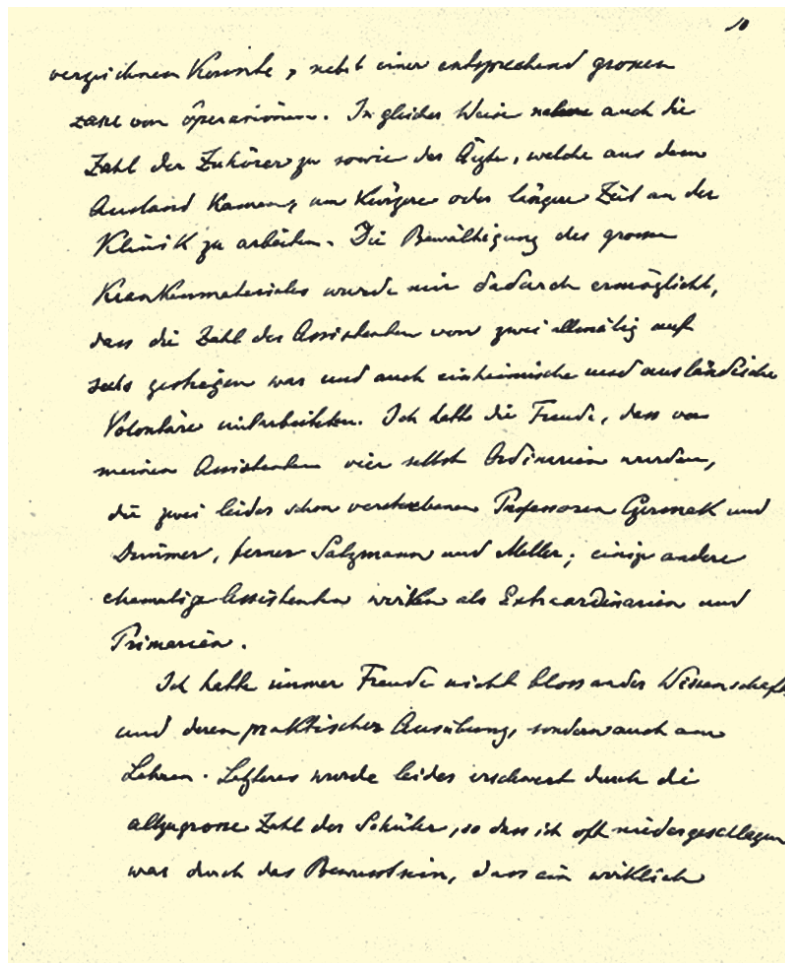 10
verzeichnen konnte, nebst einer entsprechend grossen
Zahl von Operationen. In gleicher Weise nahm auch die
Zahl der Zuhörer zu sowie der Ärzte, welche aus dem
Ausland kamen, um kürzere oder längere Zeit an der
Klinik zu arbeiten. Die Bewältigung des grossen
Krankenmateriales wurde mir dadurch ermöglicht,
dass die Zahl der Assistenten von zwei allmälig auf
sechs gestiegen war und auch einheimische und ausländische
Volontäre mitarbeiteten. Ich hatte die Freude, dass von
meinen Assistenten vier selbst Ordinarien wurden,
die zwei leider schon verstorbenen Professoren Czermak und
Dimmer, ferner Salzmann und Meller; einige andere
ehemalige Assistenten wirken als Extraordinarien und
Primarien.
Ich hatte immer Freude nicht bloss an der Wissenschaft
und deren praktischer Ausübung, sondern auch am
Lehren. Letzteres wurde leider erschwert durch die
allzugrosse Zahl der Schüler, so dass ich oft niedergeschlagen
war durch das Bewusstsein, dass ein wirklich